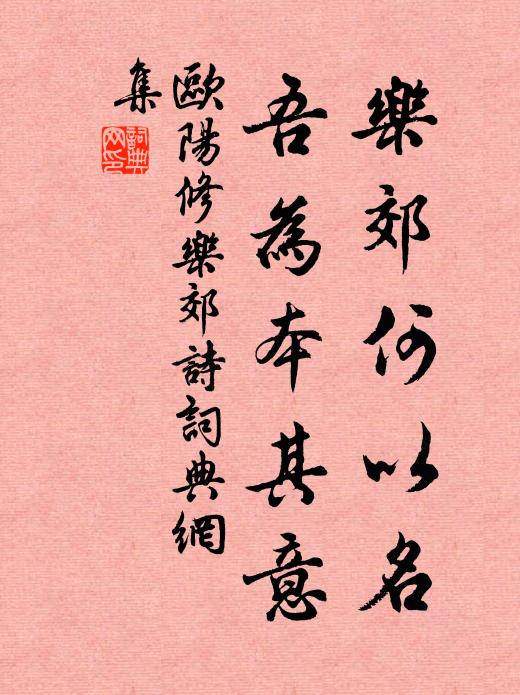 樂郊何以名
吾為本其意
歐陽修樂郊詩詞典網
集
詞典
网印